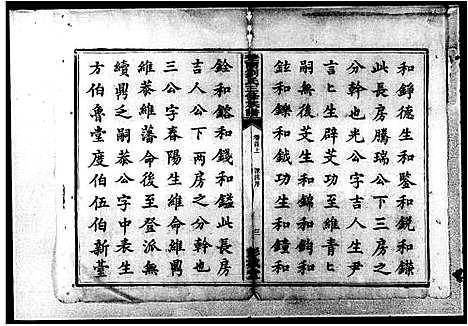 和錚德生和鋻和銳和鏷
此長房騰瑞公下三房之
分幹也光公字吉人生尹
言匕生辟芠生維青匕匕
嗣無後芠生和錦和鈞和
鉒和鑠和鉞功生和鐘和
卷首上
三
銓和鎔和錢和鎰此長房
吉人公下兩房之分幹也
三公字春陽生維命維周
維蓁維藩命後至登派無
續周乏嗣蓁公字中表生
方伯魯堂度伯伍伯新堂